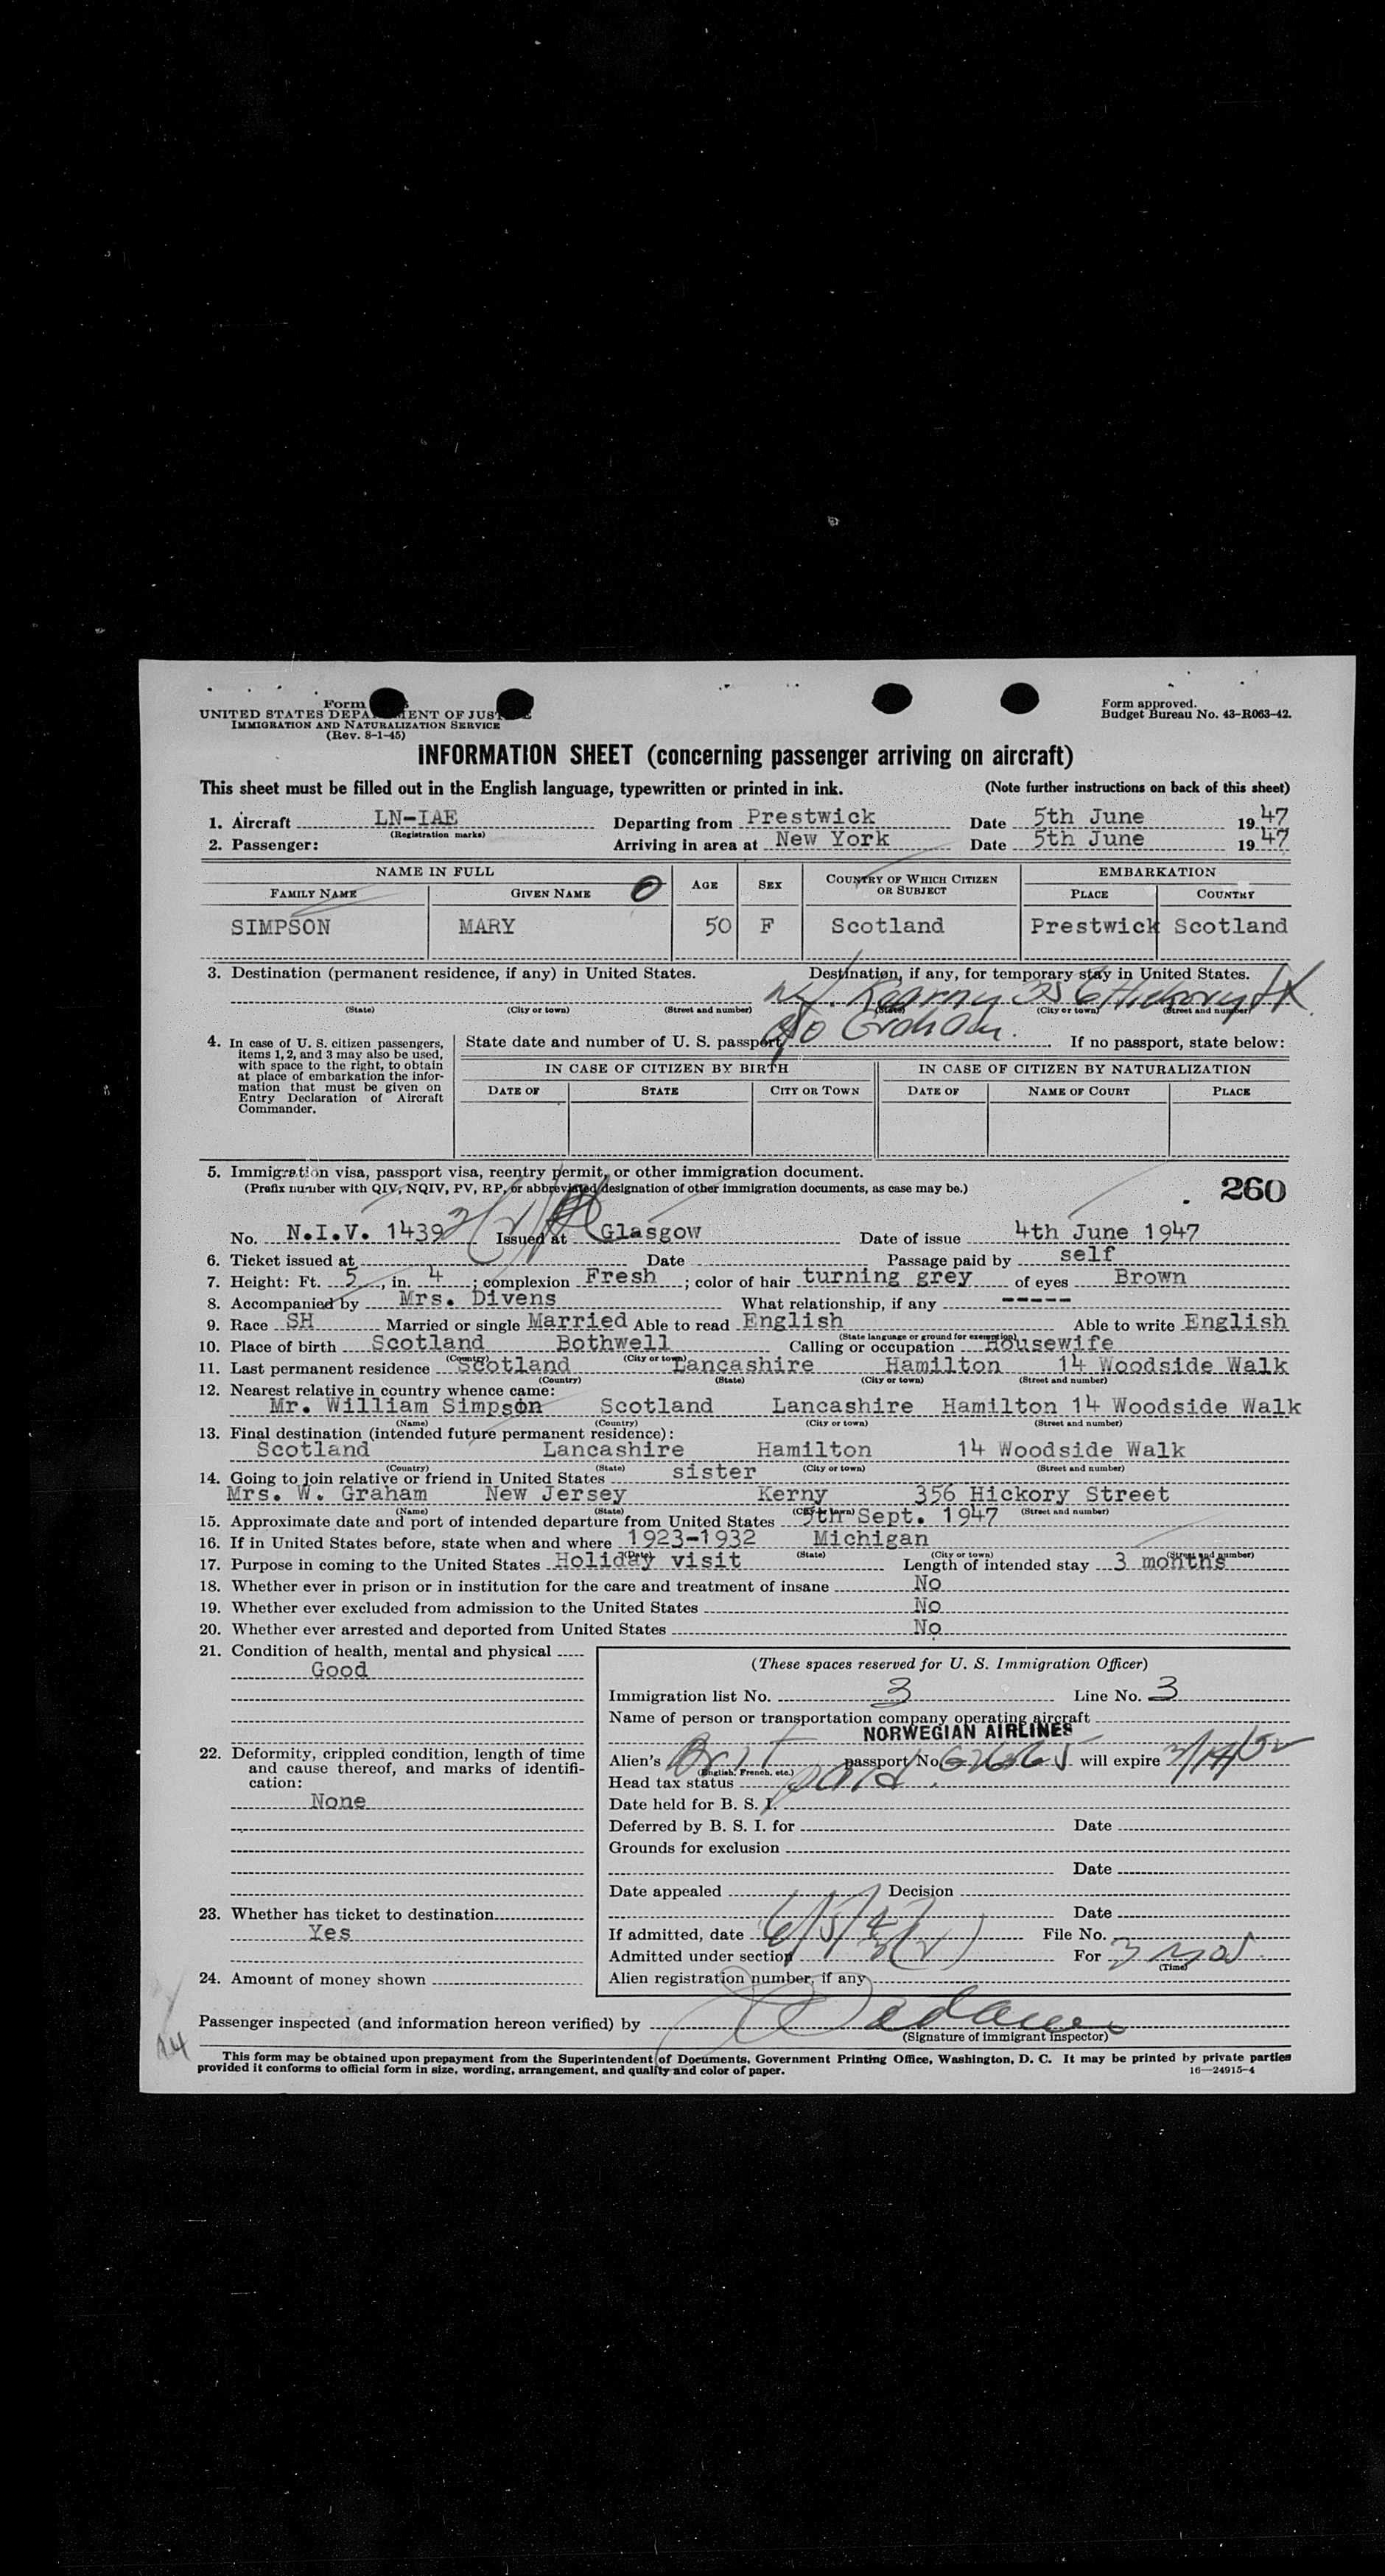 Form
UNITED STATES DEPARTMENT OF JUSTICE
IMMIGRATION AND NATURALIZATION SERVICE
(Rev. 8-1-45)
Form approved.
Budget Bureau No. 43-R063-42.
INFORMATION SHEET (concerning passenger arriving on aircraft)
This sheet must be filled out in the English language, typewritten or printed in ink. (Note further instructions on back of this sheet)
1. Aircraft LN-IAE Departing from Prestwick Date 5th June 1947
(Registration marks)
2. Passenger: Arriving in area at New York Date 5th June 1947
NAME IN FULL AGE SEX COUNTRY OF WHICH CITIZEN OR SUBJECT EMBARKATION
FAMILY NAME GIVEN NAME PLACE COUNTRY
SIMPSON MARY 50 F Scotland Prestwick Scotland
3. Destination (permanent residence, if any) in United States. Destination, if any, for temporary stay in United States.
NJ. Kearny 356 Hickory St.
(State) (City or town) (Street and number) (State) (City or town) (Street and number)
c/o Graham.
4. In case of U. S. citizen passengers, items 1, 2, and 3 may also be used, with space to the right, to obtain at place of embarkation the information that must be given on Entry Declaration of Aircraft Commander.
State date and number of U. S. passport If no passport, state below:
IN CASE OF CITIZEN BY BIRTH IN CASE OF CITIZEN BY NATURALIZATION
DATE OF STATE CITY OR TOWN DATE OF NAME OF COURT PLACE
5. Immigration visa, passport visa, reentry permit, or other immigration document.
(Prefix number with QIV, NQIV, PV, RP, or abbreviated designation of other immigration documents, as case may be.)
260
No. N.I.V. 1439 3(2) Issued at Glasgow Date of issue 4th June 1947
6. Ticket issued at Date Passage paid by self
7. Height: Ft. 5, in. 4; complexion Fresh; color of hair turning grey of eyes Brown
8. Accompanied by Mrs. Divens What relationship, if any -----
9. Race SH Married or single Married Able to read English Able to write English
(State language or ground for exemption)
10. Place of birth Scotland Bothwell Calling or occupation Housewife
(Country) (City or town)
11. Last permanent residence Scotland Lancashire Hamilton 14 Woodside Walk
(Country) (State) (City or town) (Street and number)
12. Nearest relative in country whence came:
Mr. William Simpson Scotland Lancashire Hamilton 14 Woodside Walk
(Name) (Country) (City or town) (Street and number)
13. Final destination (intended future permanent residence):
Scotland Lancashire Hamilton 14 Woodside Walk
(Country) (State) (City or town) (Street and number)
14. Going to join relative or friend in United States sister
Mrs. W. Graham New Jersey Kerny 356 Hickory Street
(Name) (State) (City or town) (Street and number)
15. Approximate date and port of intended departure from United States 5th Sept. 1947
16. If in United States before, state when and where 1923-1932 Michigan
(Date) (State) (City or town) (Street and number)
17. Purpose in coming to the United States Holiday visit Length of intended stay 3 months
18. Whether ever in prison or in institution for the care and treatment of insane No
19. Whether ever excluded from admission to the United States No
20. Whether ever arrested and deported from United States No
21. Condition of health, mental and physical
Good
22. Deformity, crippled condition, length of time and cause thereof, and marks of identification:
None
23. Whether has ticket to destination
Yes
24. Amount of money shown
(These spaces reserved for U. S. Immigration Officer)
Immigration list No. 3 Line No. 3
Name of person or transportation company operating aircraft
NORWEGIAN AIRLINES
Alien's Brit passport No. will expire
(English, French, etc.)
Head tax status paid
Date held for B. S. I.
Deferred by B. S. I. for Date
Grounds for exclusion
Date
Date appealed Decision
Date
If admitted, date 6/5/47 File No.
Admitted under section 3(2) For 3 mos.
(Time)
Alien registration number, if any
Passenger inspected (and information hereon verified) by
(Signature of immigrant inspector)
This form may be obtained upon prepayment from the Superintendent of Documents, Government Printing Office, Washington, D. C. It may be printed by private parties
provided it conforms to official form in size, wording, arrangement, and quality and color of paper. 16—24915-4